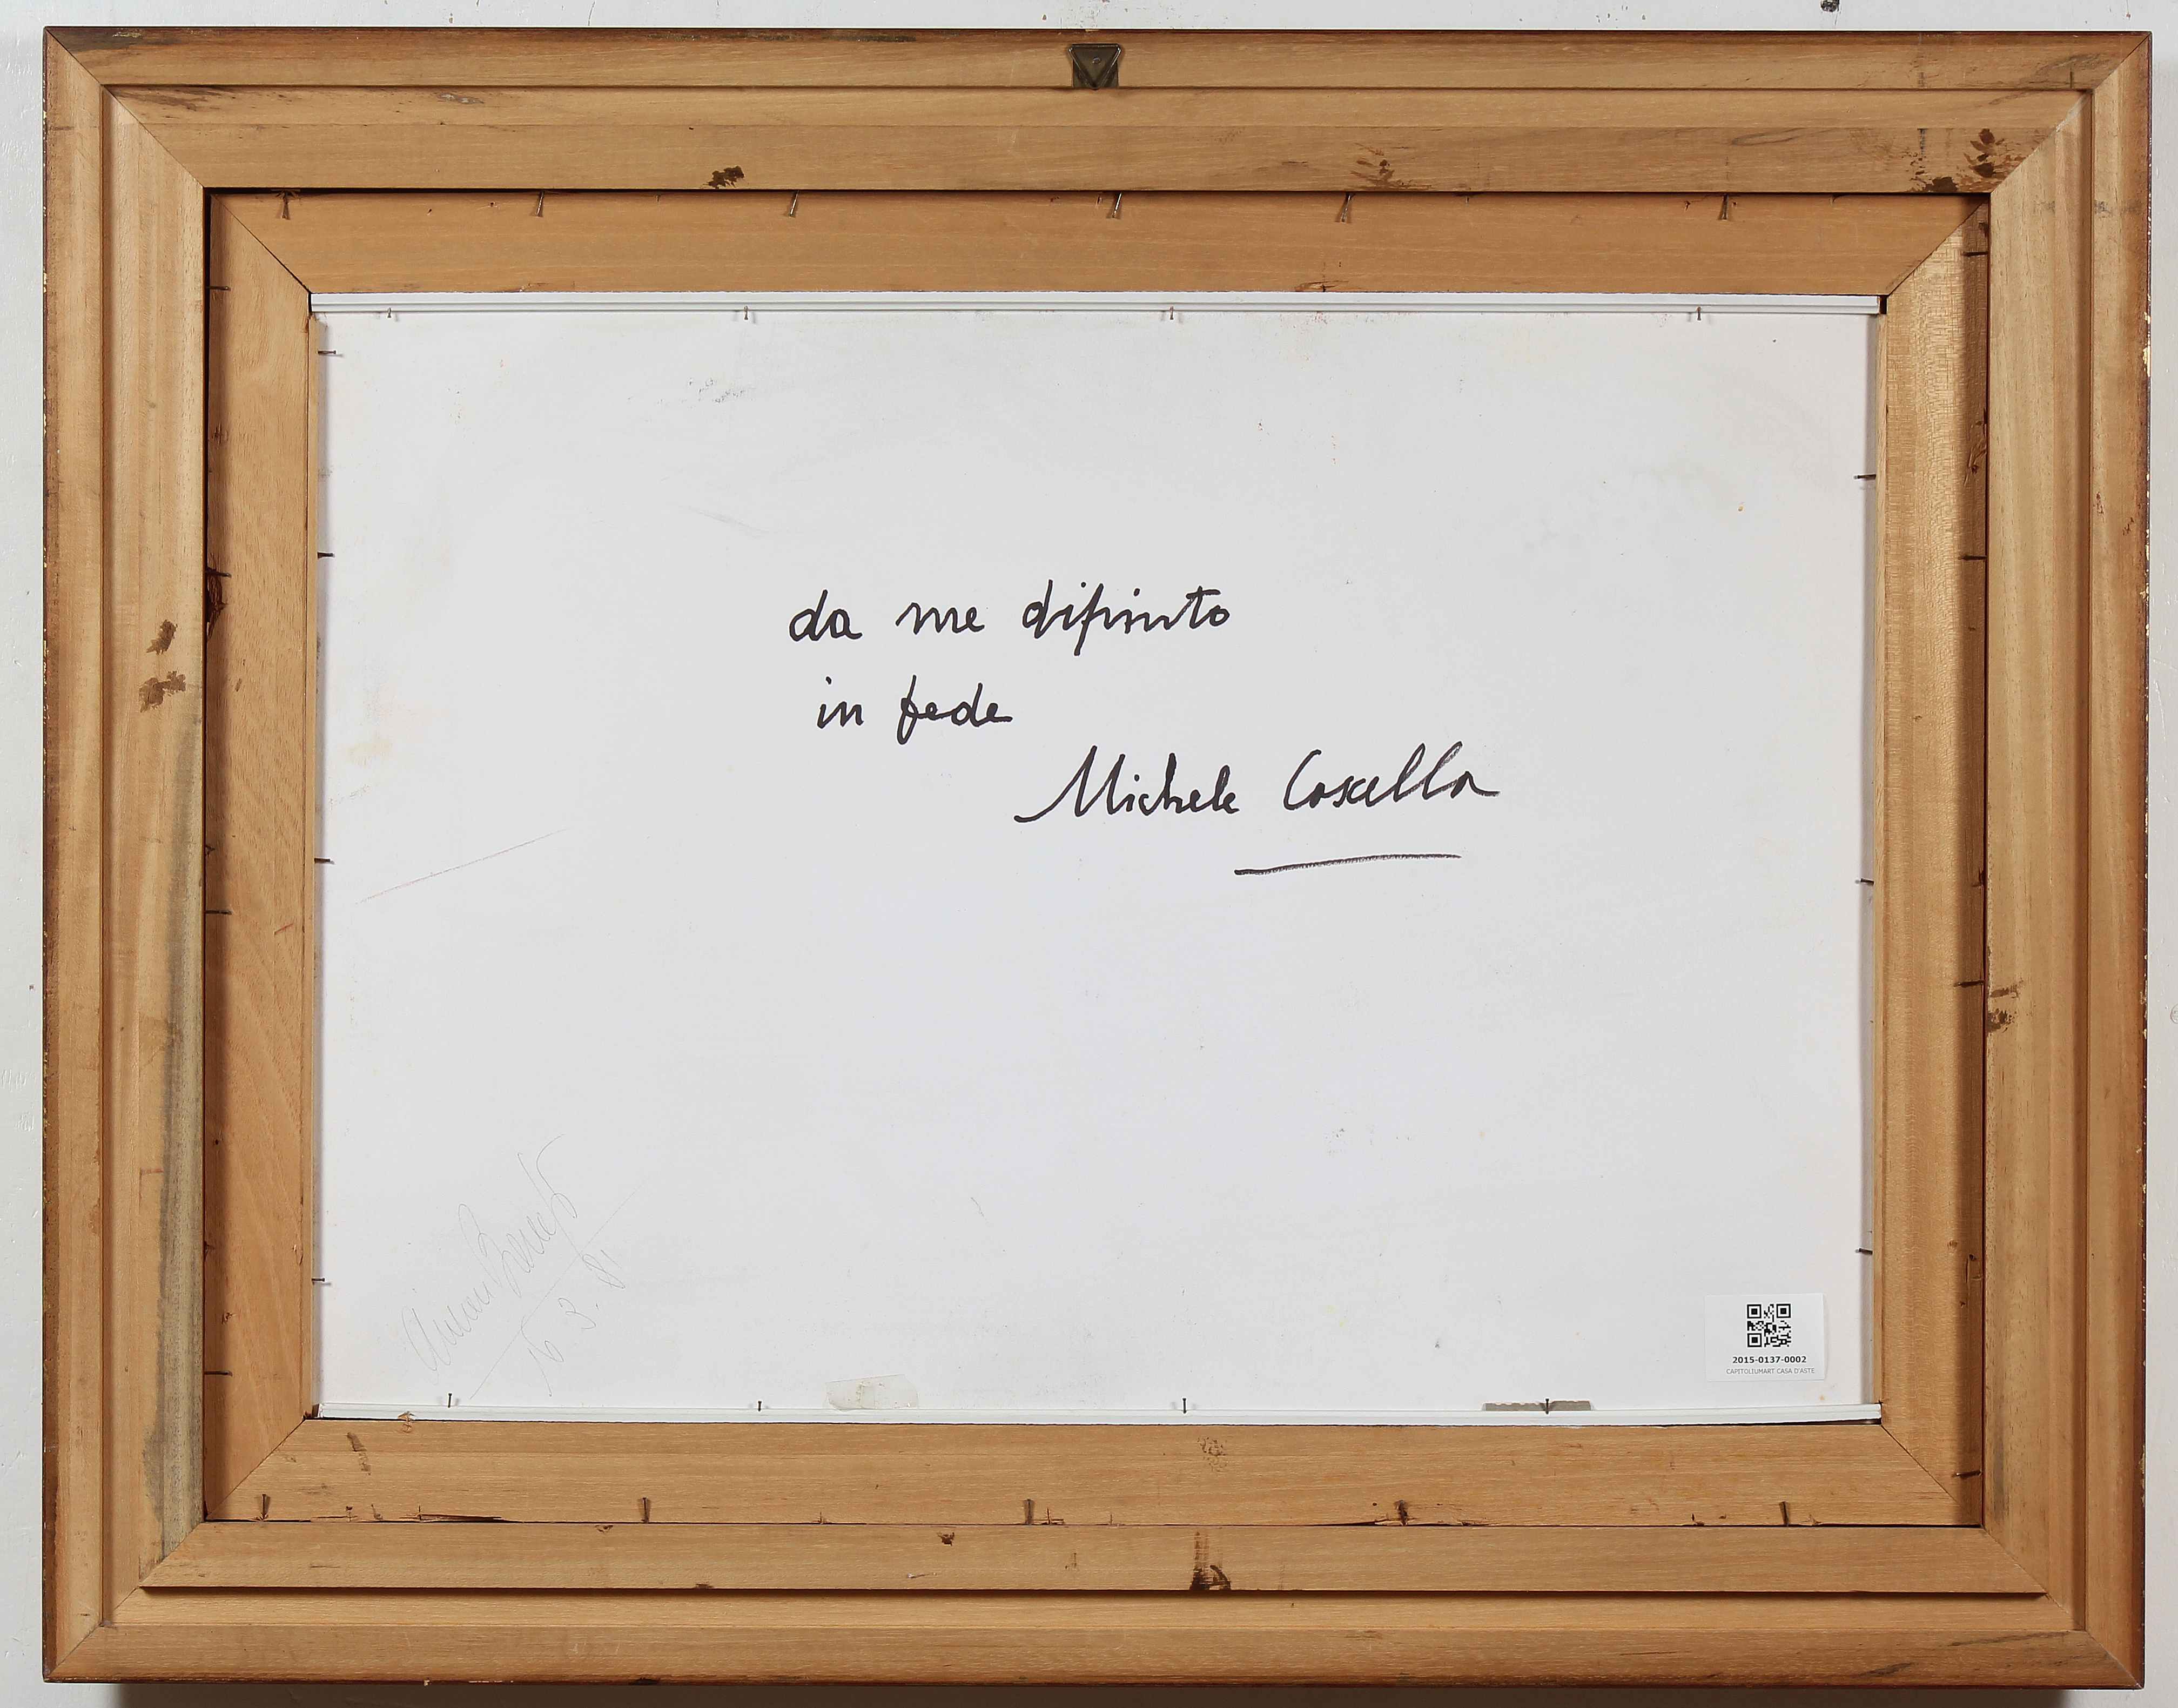 da me dipinto
in fede
Michele Cascella
2015-0137-0002
CAPITOLIUMART CASA D'ASTE